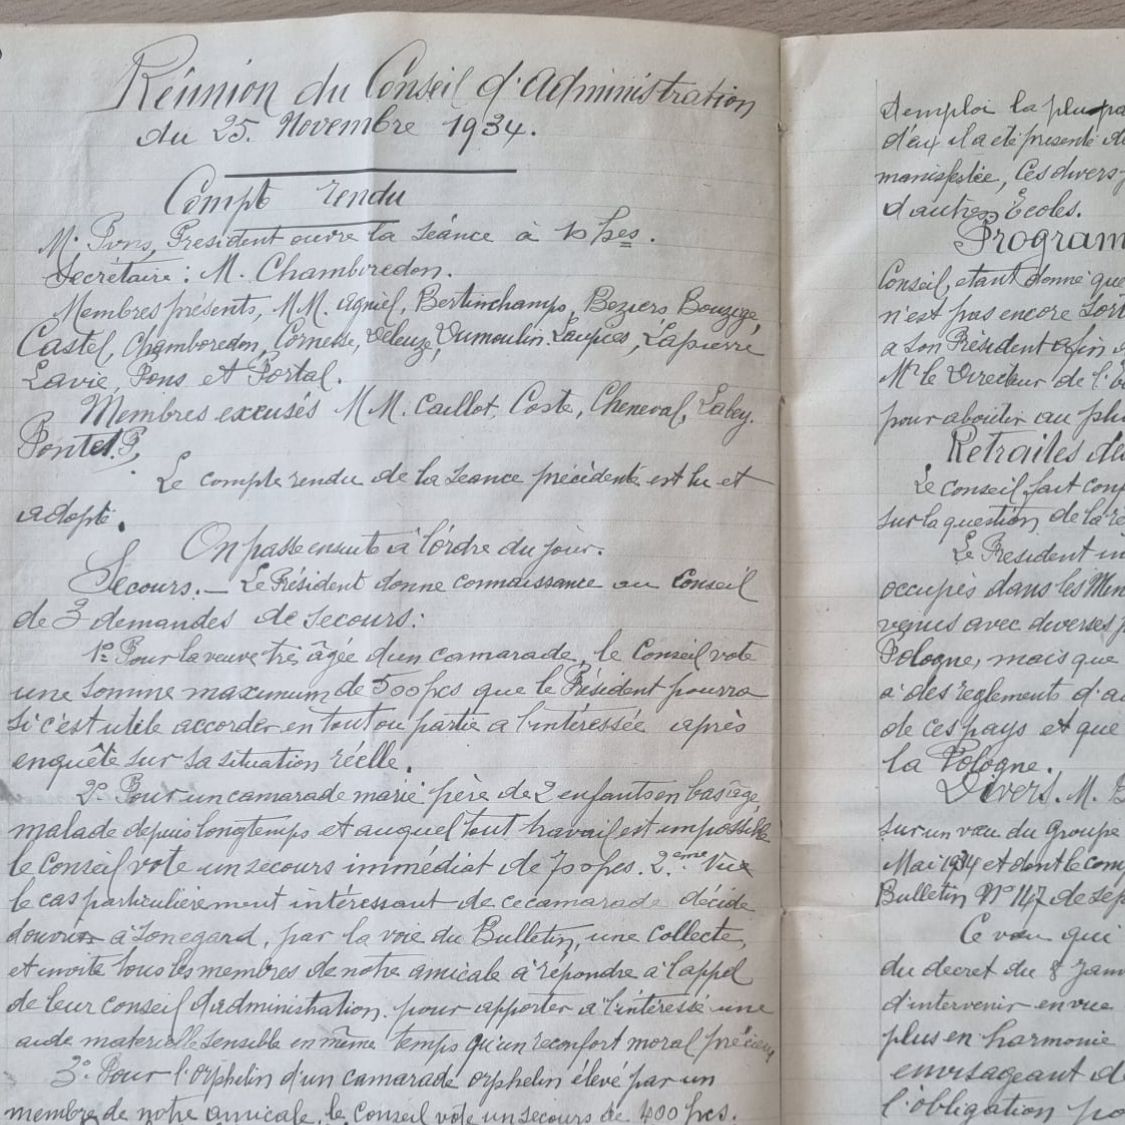 Réunion du Conseil d'Administration
du 25. Novembre 1934.
Compte rendu
M. Pons, President ouvre la séance à 10 hes.
Secrétaire: M. Chamboredon.
Membres présents, MM. Agniel, Bertinchamps, Beziers Bouzige,
Castel, Chamboredon, Cornesse, Deleuze, Dumoulin. Laupies, Lapierre
Lavie, Pons et Portal.
Membres excusés MM. Caillot, Coste, Cheneval, Labey.
Pontet. P,
Le compte rendu de la séance précédente est lu et
adopté.
On passe ensuite à l'ordre du jour.
Secours. — Le Président donne connaissance au Conseil
de 3 demandes de secours:
1º Pour la veuve très âgée d'un camarade, le Conseil vote
une somme maximum de 500 fcs que le Président pourra
si c'est utile accorder en tout ou partie a l'intéressée après
enquête sur sa situation réelle.
2º Pour un camarade marié père de 2 enfants en bas âge,
malade depuis longtemps et auquel tout travail est impossible
le Conseil vote un secours immédiat de 700 fcs. 2.eme Vue
le cas particulièrement intéressant de ce camarade décide
d'ouvrir à son egard, par la voie du Bulletin, une collecte,
et invite tous les membres de notre amicale à répondre à l'appel
de leur conseil d'administration. pour apporter a l'intéressé une
aide materielle sensible en même temps qu'un reconfort moral précieux
3º Pour l'orphelin d'un camarade orphelin élevé par un
membre de notre amicale, le Conseil vote un secours de 400 fcs.
d'emploi la plupa
d'eux il a été présenté
manifestée, Ces divers
d'autres Ecoles.
Program
Conseil, etant donné que
n'est pas encore sort
a son Président afin
Mr le Directeur de l'
pour aboutir au plu
Retraites de
Le conseil fait con
sur la question de la re
Le President in
occupés dans les Min
venus avec diverses
Pologne, mais que
à des reglements d'a
de ces pays et que
la Pologne.
Divers. M. B
sur un vœu du Groupe
Mai 1934 et dont le com
Bulletin Nº 117 de Sep
Ce vœu qui
du decret du 8 Jan
d'intervenir en vue
plus en harmonie
envisageant d
l'obligation po